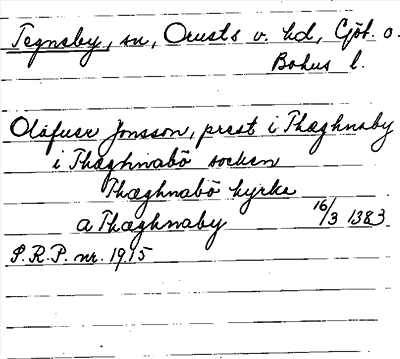 Tegneby, sn, Orusts v. hd, Göt. o.
Bohus l.
Olafuer Jonsson, prest i Thæghnaby
i Thæghnabö socken
Thæghnabö kyrke
a Thæghnaby 16/3 1383
S.R.P. nr. 1915